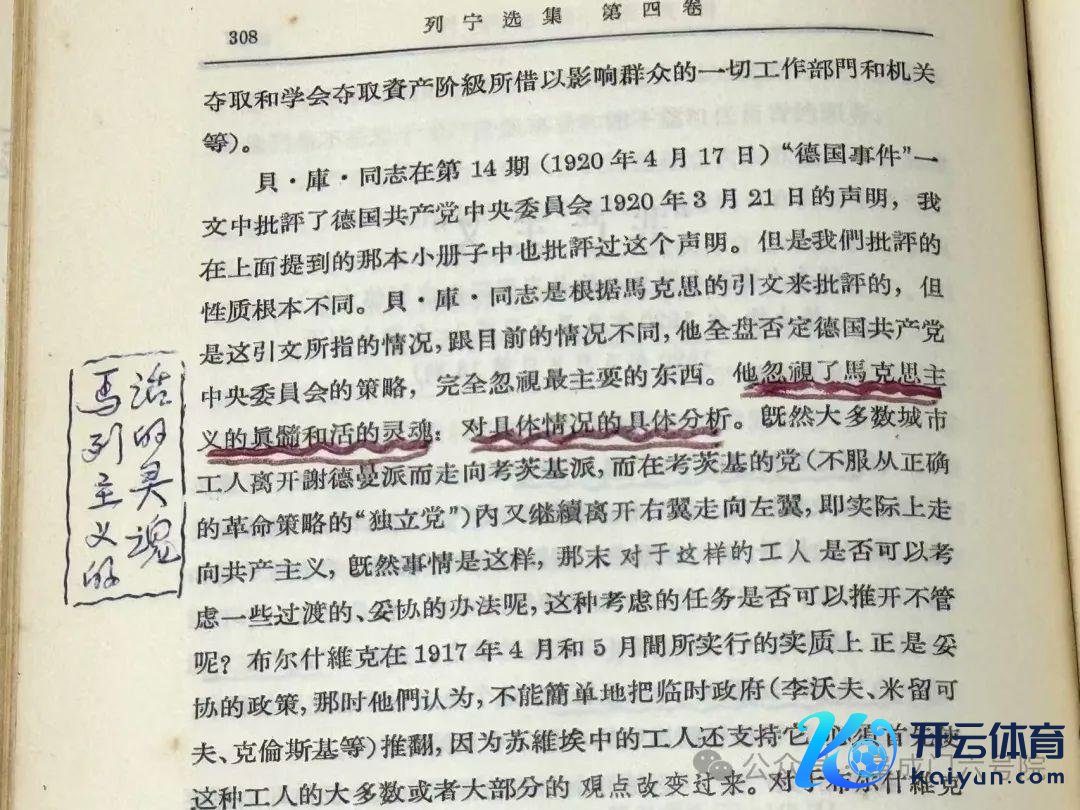 308
列宁选集 第四卷
夺取和学会夺取資产阶級所借以影响群众的一切工作部門和机关
等)。
貝·庫·同志在第 14 期 (1920 年 4 月 17 日) “德国事件”一
文中批評了德国共产党中央委員会 1920 年 3 月 21 日的声明, 我
在上面提到的那本小册子中也批評过这个声明。但是我們批評的
性质根本不同。貝·庫·同志是根据馬克思的引文来批評的, 但
是这引文所指的情况, 跟目前的情况不同, 他全盘否定德国共产党
中央委員会的策略, 完全忽視最主要的东西。他忽視了馬克思主
义的眞髓和活的灵魂: 对具体情况的具体分析。旣然大多数城市
工人离开謝德曼派而走向考茨基派, 而在考茨基的党 (不服从正确
的革命策略的“独立党”) 內又继續离开右翼走向左翼, 即实际上走
向共产主义, 旣然事情是这样, 那末对于这样的工人是否可以考
虑一些过渡的、妥协的办法呢, 这种考虑的任务是否可以推开不管
呢? 布尔什維克在 1917 年 4 月和 5 月間所实行的实质上正是妥
协的政策, 那时他們认为, 不能簡单地把临时政府 (李沃夫、米留可
夫、克倫斯基等) 推翻, 因为苏維埃中的工人还支持它
这种工人的大多数或者大部分的观点改变过来。对于布尔什維克
馬列主义的
活的灵魂
公众号
开云体育
kaiyun.com